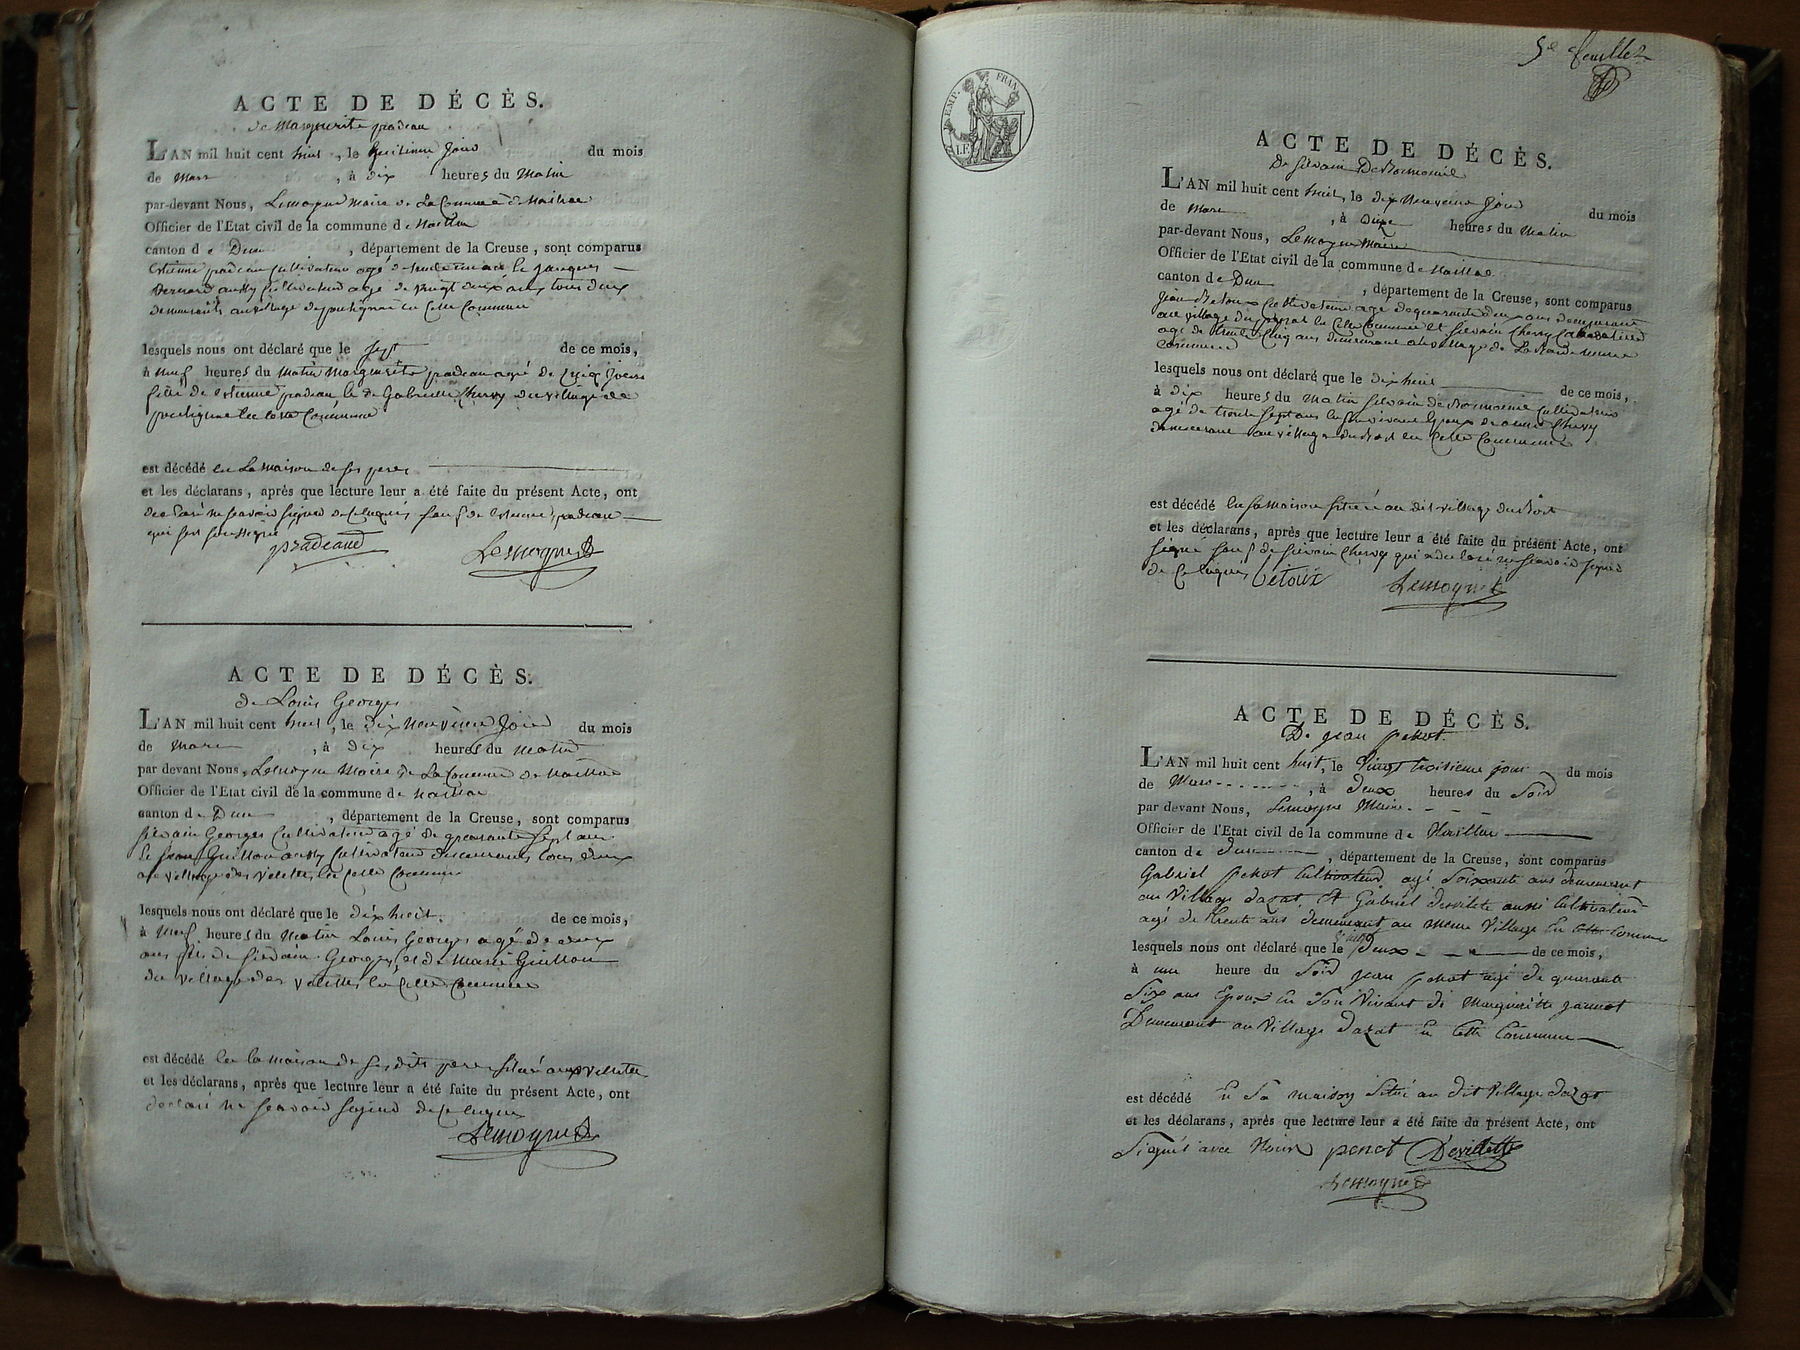 ACTE DE DÉCÈS.
de Marguerite pradeau
L'AN mil huit cent huit, le huitieme Jour du mois
de Mars, à dix heures du Matin
par-devant Nous, Lemoyne Maire de La Commune de Naillac
Officier de l'Etat civil de la commune de Naillac
canton de Dun, département de la Creuse, sont comparus
Etienne pradeau Cultivateur agé de trente ans et Jacques
Bernard aussy Cultivateur agé de vingt deux ans tous deux
demeurants au village de poulignac en Cette Commune
lesquels nous ont déclaré que le sept de ce mois,
à neuf heures du Matin Marguerite pradeau agée de Cinq Jours
fille de Etienne pradeau et de Gabrielle Chervy du village de
en Cette Commune
est décédé en La Maison de ses peres
et les déclarans, après que lecture leur a été faite du présent Acte, ont
declaré ne scavoir signer de Ce Enquis sauf de Etienne pradeau
qui soussigné
pradeaud Lemoyne
ACTE DE DÉCÈS.
de Louis Georges
L'AN mil huit cent huit, le dix Neuvième Jour du mois
de Mars, à dix heures du Matin
par devant Nous, Lemoyne Maire de La Commune de Naillac
Officier de l'Etat civil de la commune de Naillac
canton de Dun, département de la Creuse, sont comparus
Silvain Georges Cultivateur agé de quarante sept ans
et Jean Guillon aussy Cultivateur demeurants tous deux
au village des Valettes en Cette Commune
lesquels nous ont déclaré que le dix huit de ce mois,
à Neuf heures du Matin Louis Georges agé de deux
ans fils de Silvain Georges et de Marie Guillon
du village des Valettes en Cette Commune
est décédé en la maison de ses dits peres située aux Valettes
et les déclarans, après que lecture leur a été faite du présent Acte, ont
declaré ne scavoir signer de Ce Enquis
Lemoyne
5e feuillet
EMP. FRAN.
ACTE DE DÉCÈS.
De Silvain
L'AN mil huit cent huit, le dix Neuvieme Jour du mois
de Mars, à dix heures du Matin
par-devant Nous, Lemoyne Maire
Officier de l'Etat civil de la commune de Naillac
canton de Dun, département de la Creuse, sont comparus
Jean Betoux Cultivateur agé de quarante deux ans demeurant
au village du en Cette Commune et Silvain Chervy Cultivateur
agé de trente Cinq ans demeurant au village de La
Commune
lesquels nous ont déclaré que le dix huit de ce mois,
à dix heures du Matin Silvain Cultivateur
agé de trente sept ans en son vivant Epoux de Chervy
demeurant au village du en Cette Commune
est décédé en sa maison située au dit village du
et les déclarans, après que lecture leur a été faite du présent Acte, ont
signé sauf de Silvain Chervy qui a declaré ne scavoir signer
de Ce Enquis Betoux Lemoyne
ACTE DE DÉCÈS.
De jean penot.
L'AN mil huit cent huit, le Vingt troisieme jour du mois
de Mars, à deux heures du Soir
par devant Nous, Lemoyne Maire
Officier de l'Etat civil de la commune de Naillac
canton de dun, département de la Creuse, sont comparus
Gabriel penot Cultivateur agé Soixante ans demeurant
au Village dazat Et Gabriel devilette aussi Cultivateur
agé de trente ans demeurant au meme Village En Cette Commune
lesquels nous ont déclaré que le Vingt Deux de ce mois,
à une heure du Soir jean penot agé de quarante
Six ans Epoux En Son Vivant de Margueritte
Demeurant au Village dazat En Cette Commune
est décédé En Sa maison Située au dit Village dazat
et les déclarans, après que lecture leur a été faite du présent Acte, ont
Signés avec Nous penot Devillette
Lemoyne